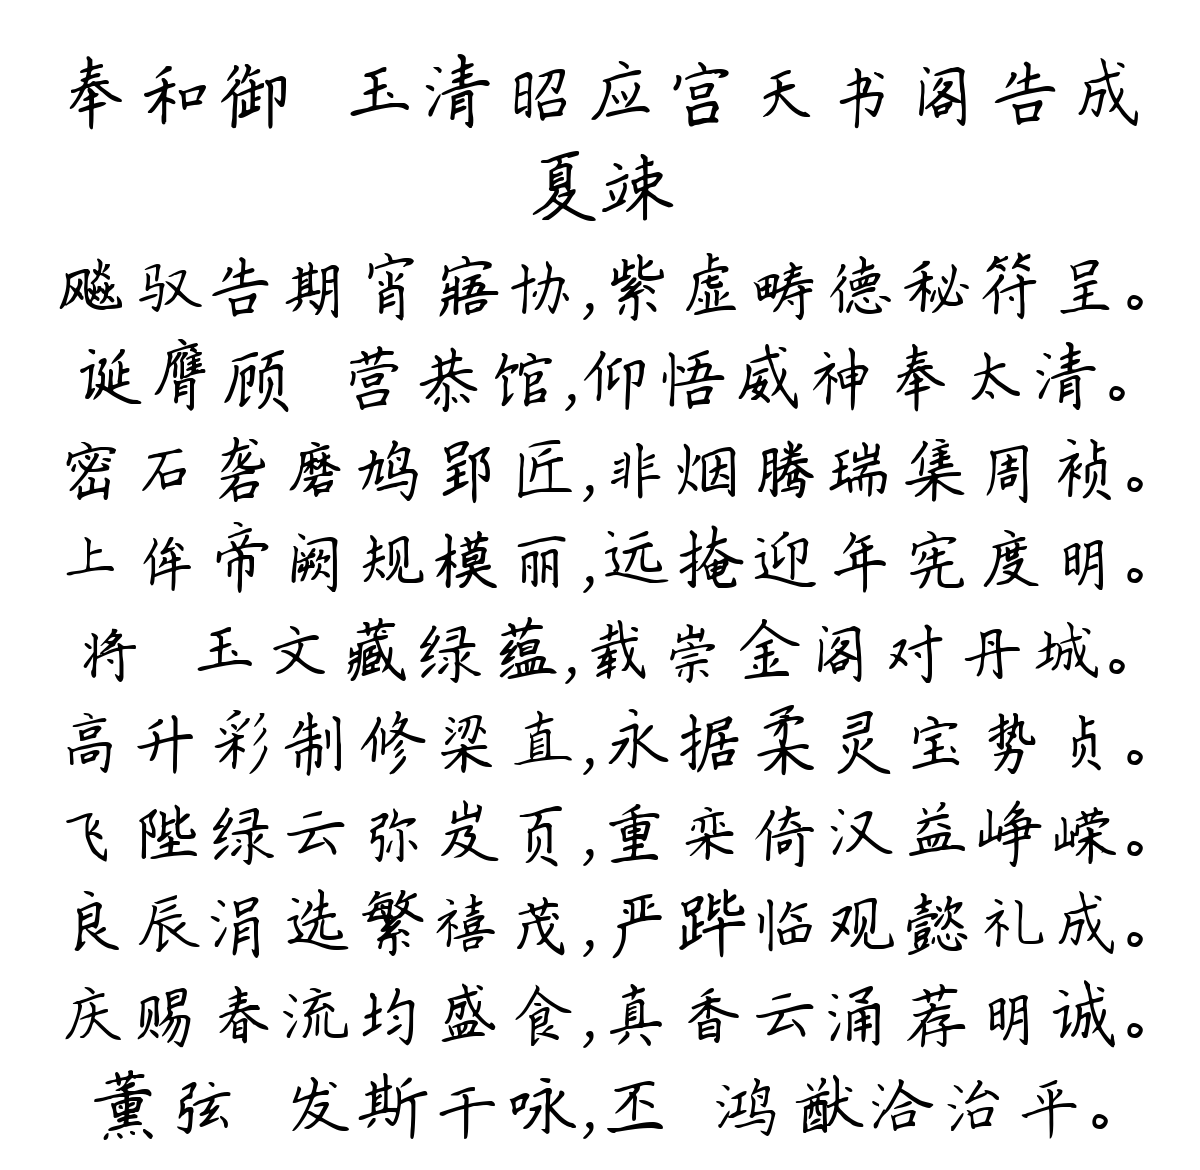 奉和御 玉清昭应宫天书阁告成
夏竦
飚驭告期宵寤协,紫虚畴德秘符呈。
诞膺顾 营恭馆,仰悟威神奉太清。
密石砻磨鸠郢匠,非烟腾瑞集周祯。
上侔帝阙规模丽,远掩迎年宪度明。
将 玉文藏绿蕴,载崇金阁对丹城。
高升彩制修梁直,永据柔灵宝势贞。
飞陛绿云弥岌页,重栾倚汉益峥嵘。
良辰涓选繁禧茂,严跸临观懿礼成。
庆赐春流均盛食,真香云涌荐明诚。
薰弦 发斯干咏,丕 鸿猷洽治平。